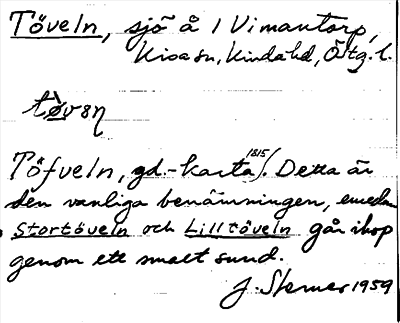 Töveln, sjö å 1 Vimantorp,
Kisa sn, Kinda hd, Östg. l.
tø̀vəη
Töfveln, gd.-karta 1815/. Detta är
den vanliga benämningen, emedan
Stortöveln och Lilltöveln går ihop
genom ett smalt sund.
J. Sterner 1959